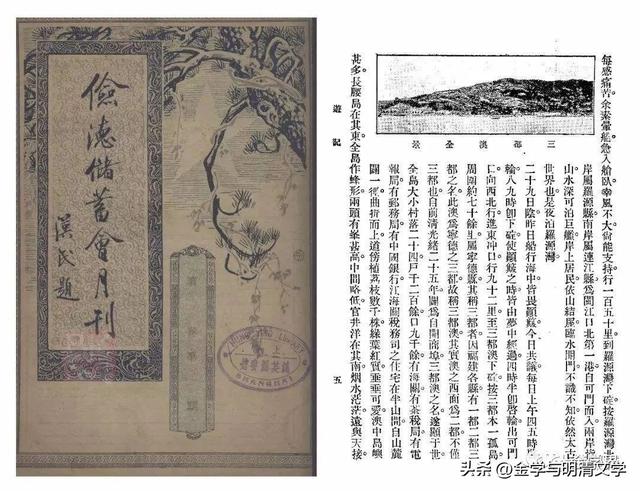 儉德儲蓄會月刊
漢民題
每感痛苦。余素暈船。急入艙臥。幸風不大。尚能支持。行一百五十里。到羅源灣下碇。按羅源灣北
岸屬羅源縣。南岸屬連江縣。爲閩江口北第一港。自可門而入。兩岸皆
山。水深可泊巨艦。岸上居民。依山結屋。臨水開門。不識不知。依然太古
世界也。是夜泊羅源灣
二十九日陰。昨日船行海中。皆畏顛簸。今日共議每日上午四五時啓
輪。八九時卽下碇。使顛簸之時。皆由夢中經過。四時半卽啓輪。出可門
口。向西北行。進東冲口。行九十二里。至三都澳下碇。按三都本一孤島
周圍約七十餘里。屬寧德縣。其稱三都者。因福建各縣有一都二都三
都之名。此澳爲寧德之三都。故稱三都澳。其實澳之西面爲二都。不僅
三都也。自前清光緒二十五年。闢爲自開商埠。三都澳之名。遂顯于世
全島大小村落二十四。戶千二百餘。口九千餘。有海關。有茶稅局。有電
報局。有郵務局。有中國銀行。江海關稅務司之住宅在半山間。自山麓
闢一徑。曲折而上。道傍植荔枝數千株。綠葉紅實。垂垂可愛。澳中島嶼
甚多。長腰島在其東。全島作蜂形。兩頭有峯甚高。中間略低。官井洋在其南。烟水茫茫。遠與天接
三都澳全景
遊記
五
头条 @金学与明清文学